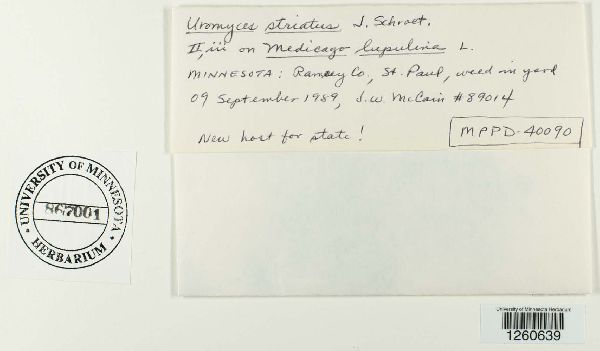 Uromyces striatus J. Schroet.
II, iii on Medicago lupulina L.
MINNESOTA: Ramsey Co., St. Paul, weed in yard
09 September 1989, J.W. McCain #89014
New host for state!
MPPD-40090
UNIVERSITY OF MINNESOTA
867001
HERBARIUM
University of Minnesota Herbarium
1260639